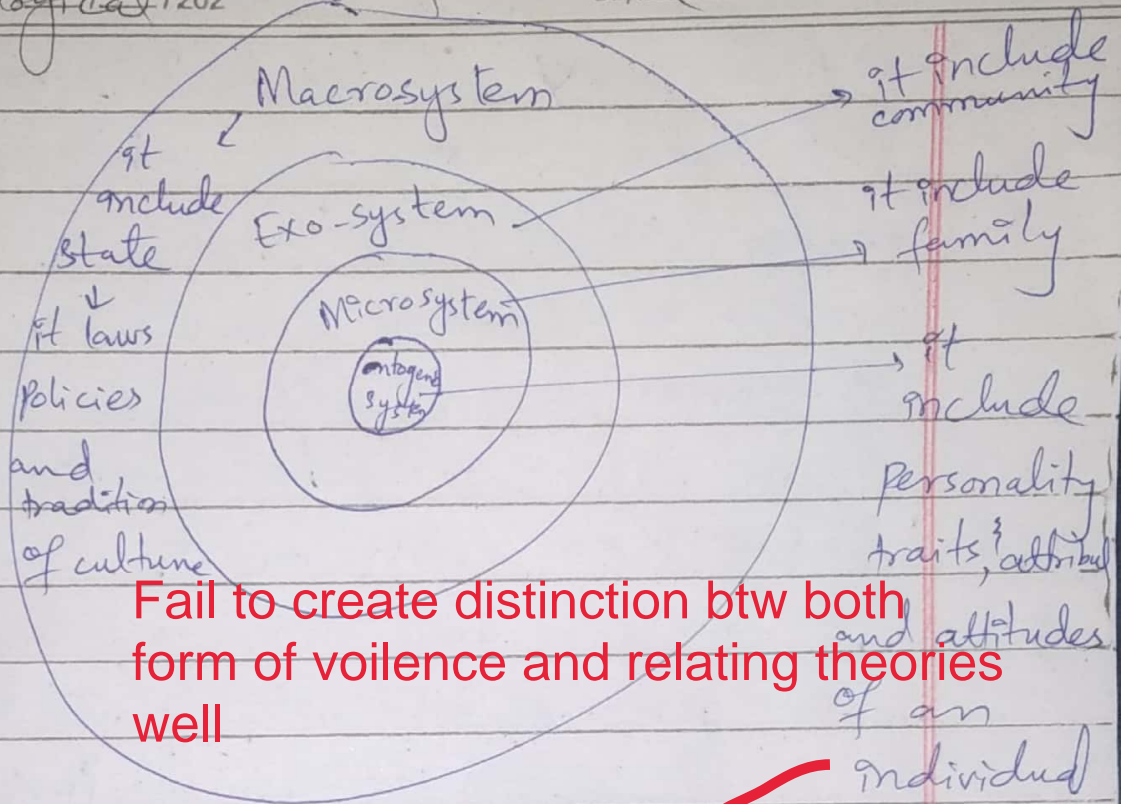 Macrosystem
it
include
state
it laws
Policies
and
tradition
of culture
Exo-system
Microsystem
system
it include
community
it include
family
it
include
personality
traits, attribu
and attitudes
of an
individual
Fail to create distinction btw both
form of voilence and relating theories
well